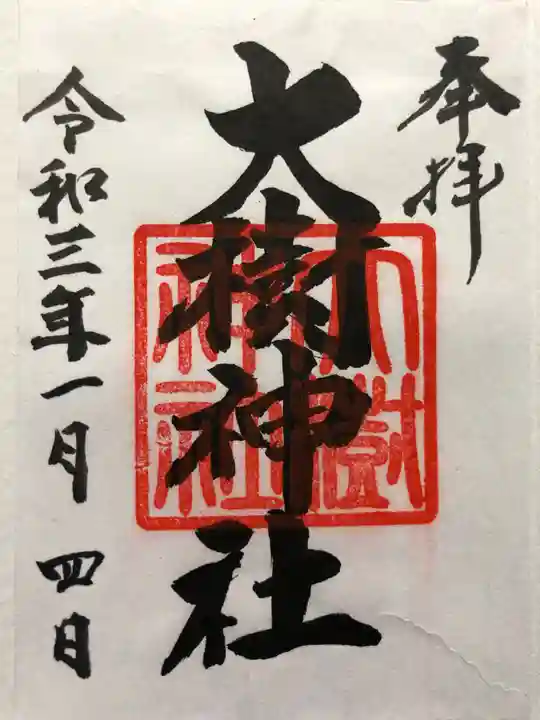 奉拝
大樹神社
大樹神社
令和三年一月四日